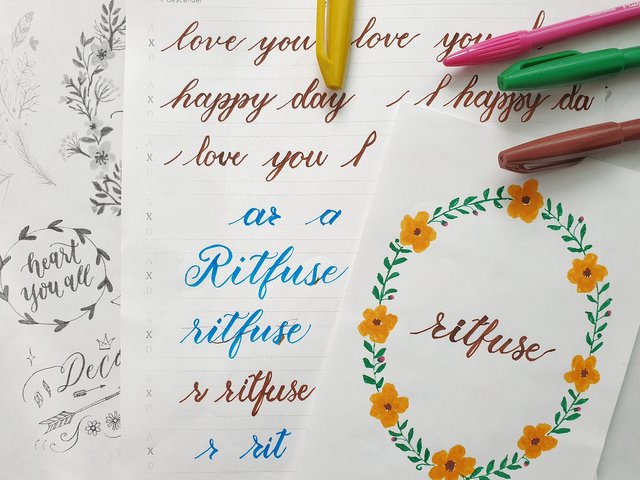 descender
love you love you
happy day l happy da
love you l
ar a
Ritfuse
ritfuse
r ritfuse
r rit
heart
you all
Deco
ritfuse